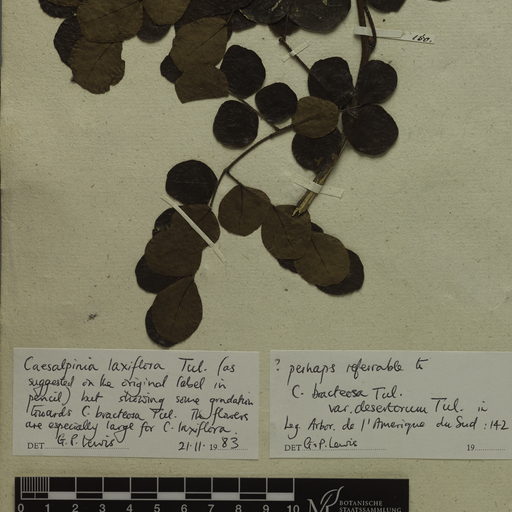 160.
Caesalpinia laxiflora Tul. (as
suggested on the original label in
pencil) but showing some gradation
towards C. bracteosa Tul. The flowers
are especially large for C. laxiflora.
DET. G.P. Lewis 21.11.1983
? perhaps referrable to
C. bracteosa Tul.
var. desertorum Tul. in
Leg. Arbor. de l'Amerique du Sud : 142
DET. G.P. Lewis 19
0 1 2 3 4 5 6 7 8 9 10
BOTANISCHE
STAATSSAMMLUNG